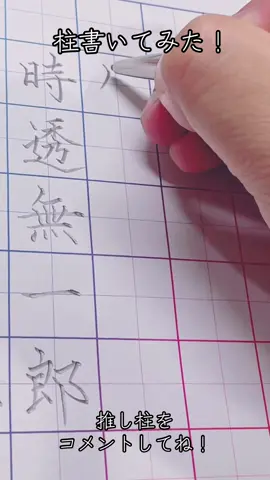 柱書いてみた！
時透無一郎
推し柱を
コメントしてね！